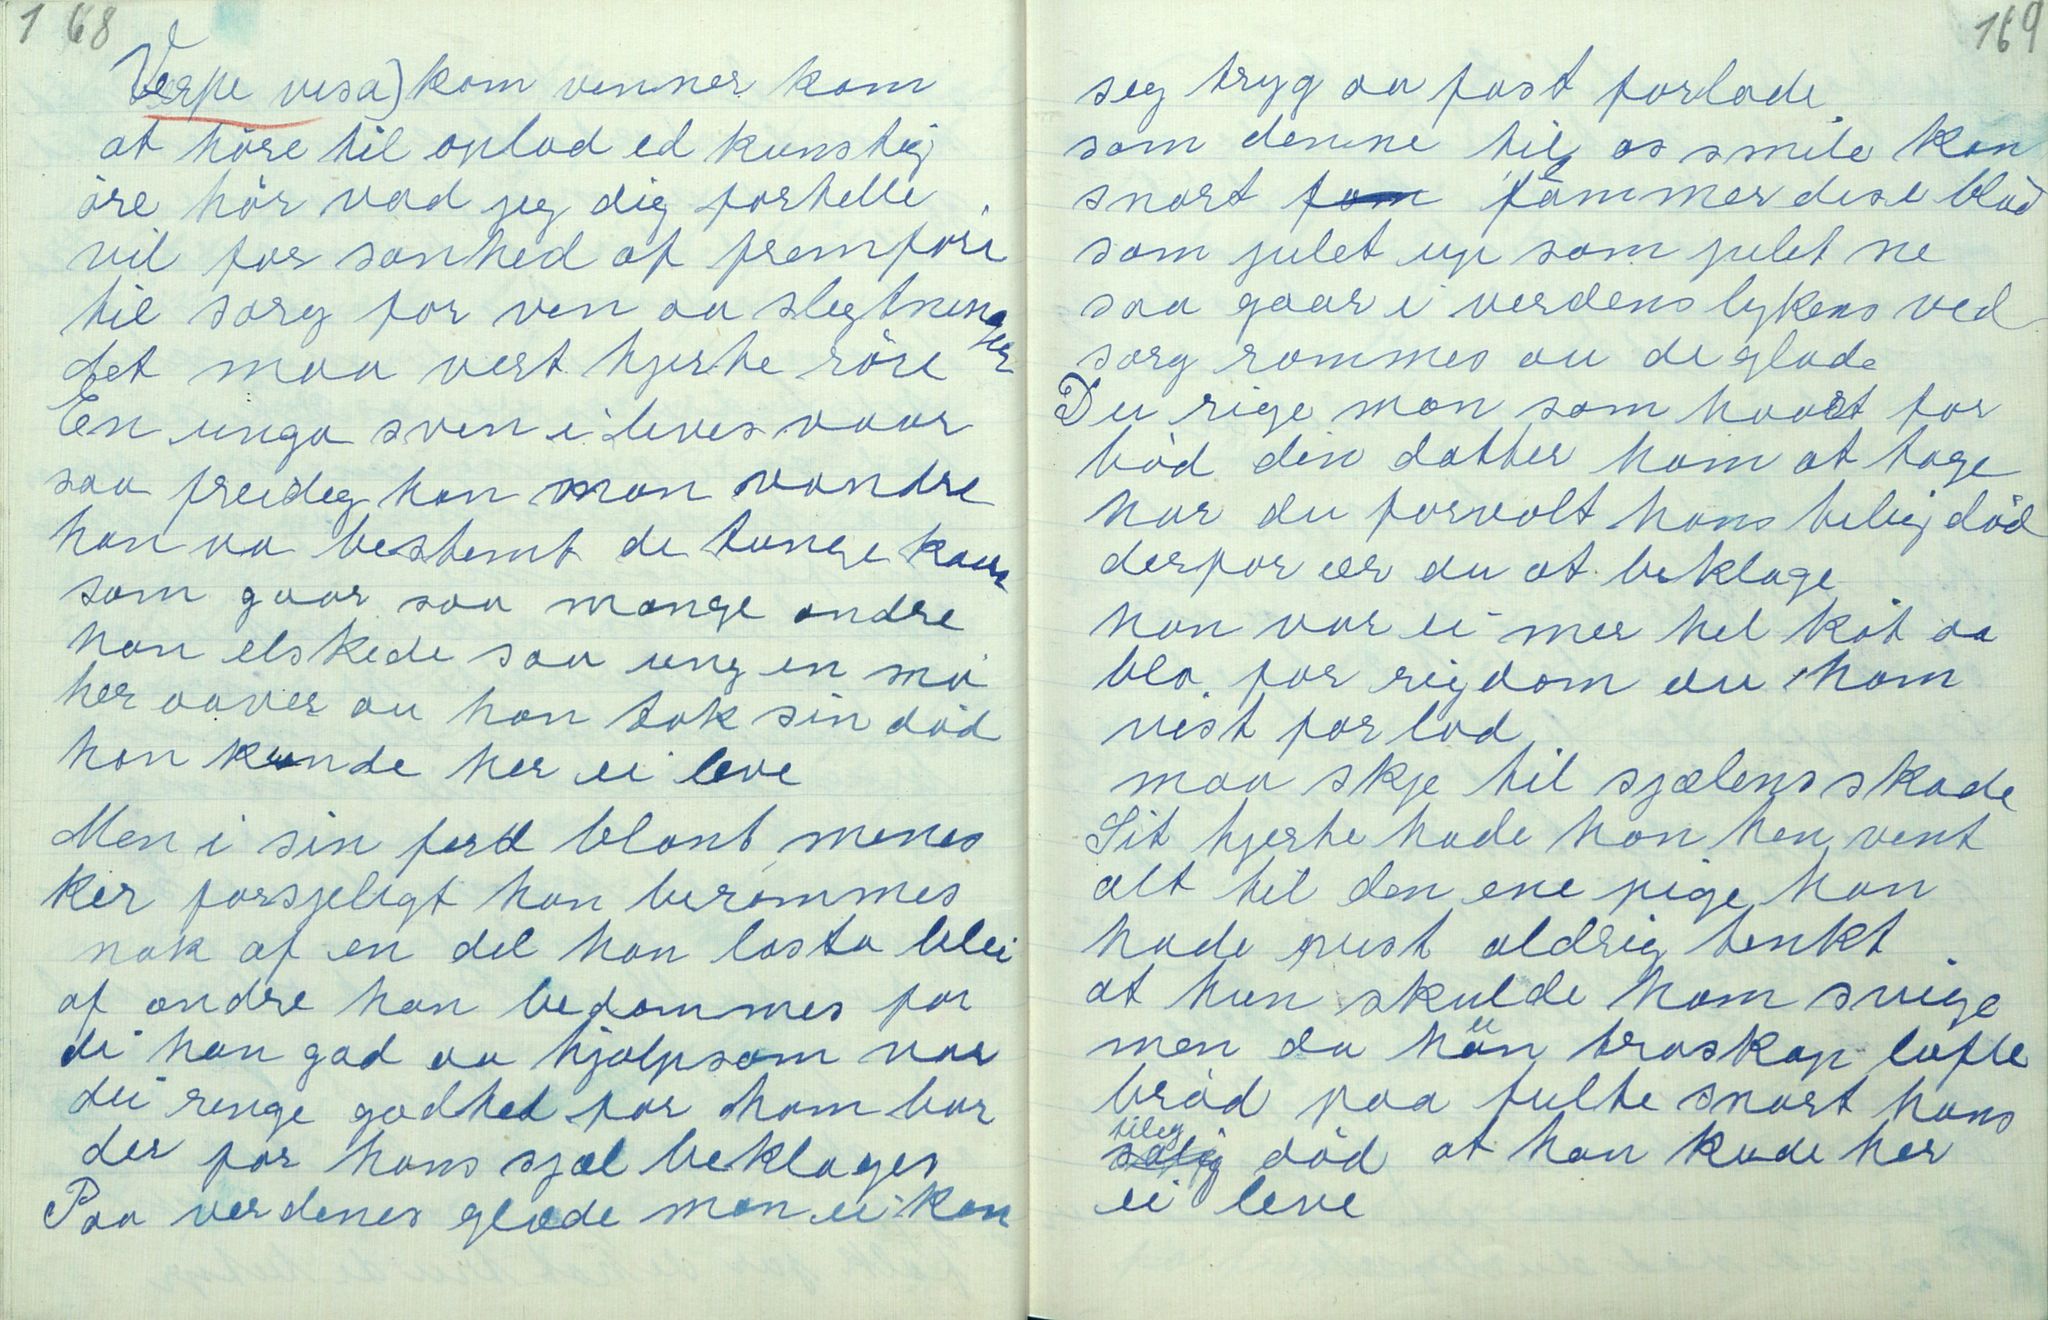 168
Verpe visa) kom venner kom
at höre til oplad ed kunstig
öre hör vad jeg dig fortelle
vil for sanhed af fremföre
til sorg for ven aa slegtninger
det maa vert hjerte röre
En unga sven i leves vaar
saa freideg han man vandre
han va bestemt de tunge kaar
som gaar saa mange andre
han elskede saa ung en mö
her aaver au han tok sin död
han kunde her ei leve
Men i sin ferd blant menes
ker forsjeligt han berommes
nok af en del han lasta blei
af andre han bedommes for
di han god aa hjalpsom var
dei renge godhed for ham bar
der for hans sjæl beklages
Paa verdenes glæde man ei kan
169
seg tryg aa fast forlade
som denne til os smile kan
snart tömmer dise blad
som julet up som julet ne
saa gaar i verdens lykens ved
sorg rammes au de glade
Du rige man som haart for
böd din datter ham at tage
har du forvolt hans tilig död
derfor ær du at beklage
han var ei mer hel köt aa
blo for rigdom du ham
vist for lod
maa skje til sjælens skade
Sit hjerte hade han hen vent
alt til den ene pige han
hade vist aldrig tenkt
at hun skulde ham svige
men da hün troskap löfte
bröd paa fulte snart hans
tileg död at han kude her
ei leve